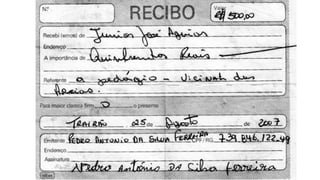 Nº RECIBO Valor R$ 500,00
Recebi (emos) de Junior José Aquino
Endereço
A importância de Quinhentos Reais
Referente a pedágio - Vicinal das
Areias.
Para maior clareza firm O o presente
TRAIRÃO 025 de Agosto de 2007
Emitente PEDRO ANTONIO DA SILVA FERREIRA 739.846.122-49
Endereço
Assinatura Pedro Antônio da Silva Ferreira